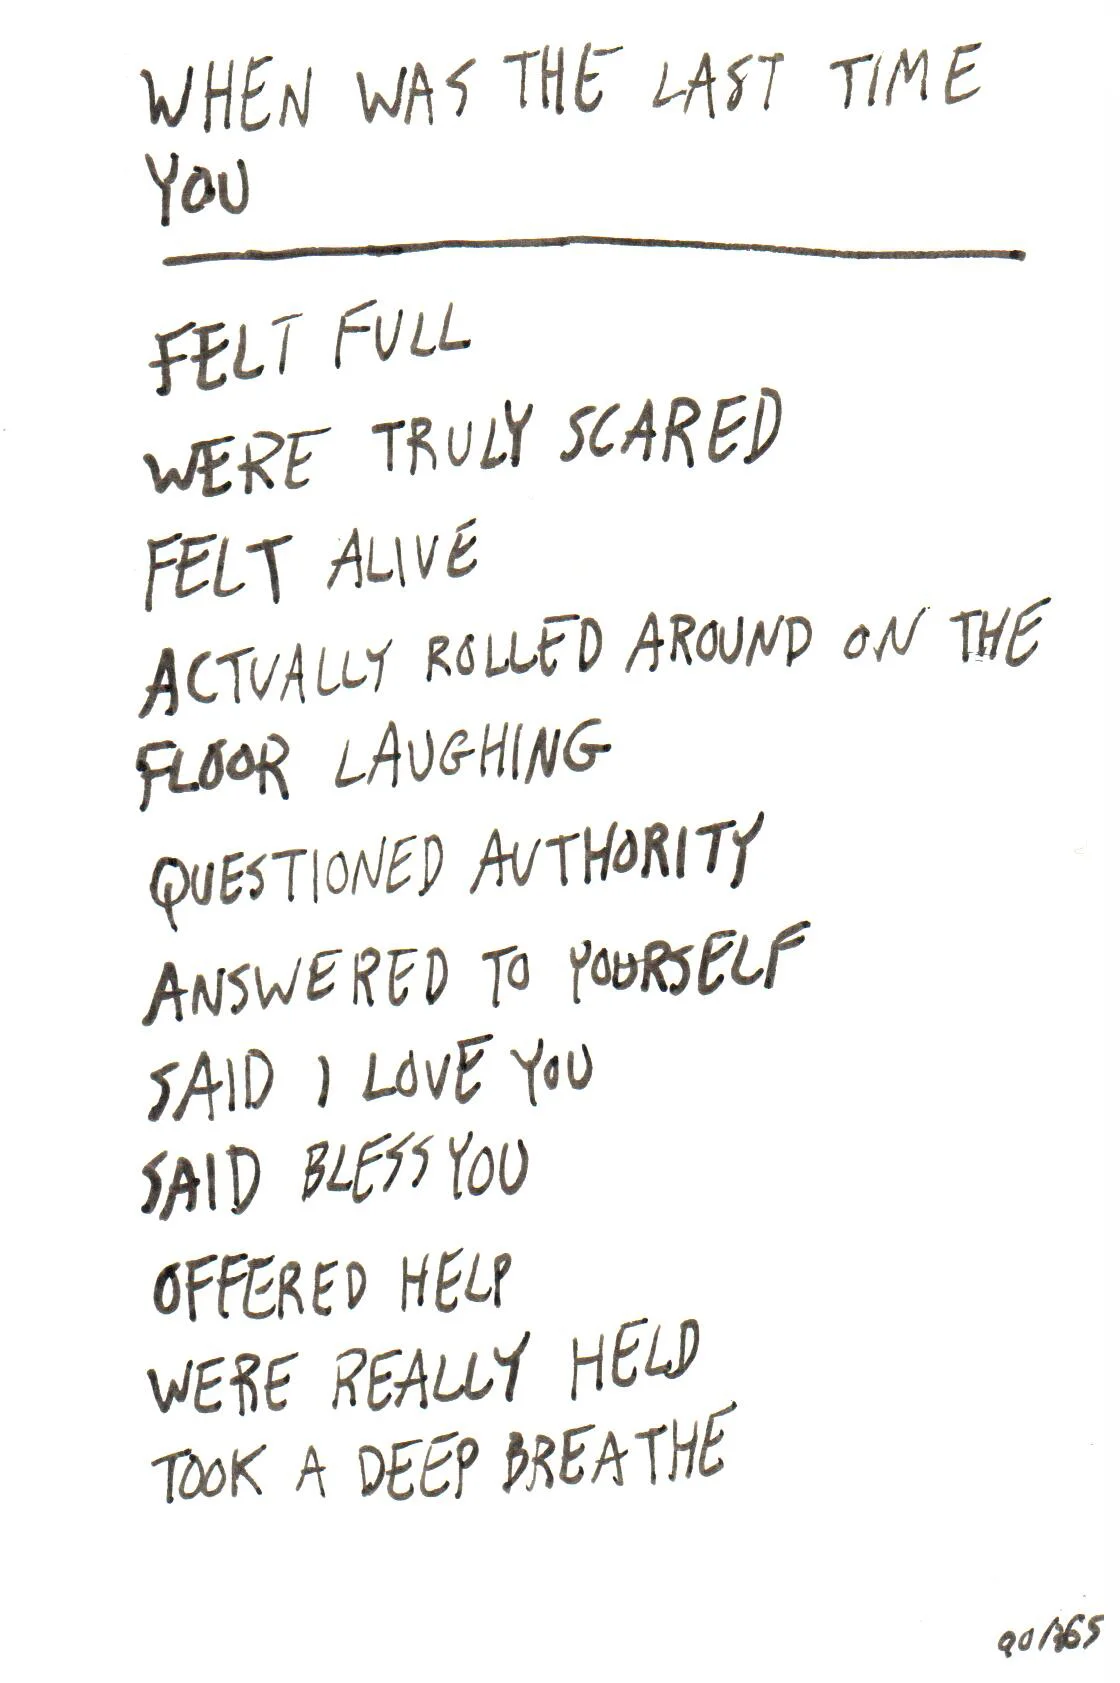 WHEN WAS THE LAST TIME
YOU
FELT FULL
WERE TRULY SCARED
FELT ALIVE
ACTUALLY ROLLED AROUND ON THE
FLOOR LAUGHING
QUESTIONED AUTHORITY
ANSWERED TO YOURSELF
SAID I LOVE YOU
SAID BLESS YOU
OFFERED HELP
WERE REALLY HELD
TOOK A DEEP BREATHE
90/365